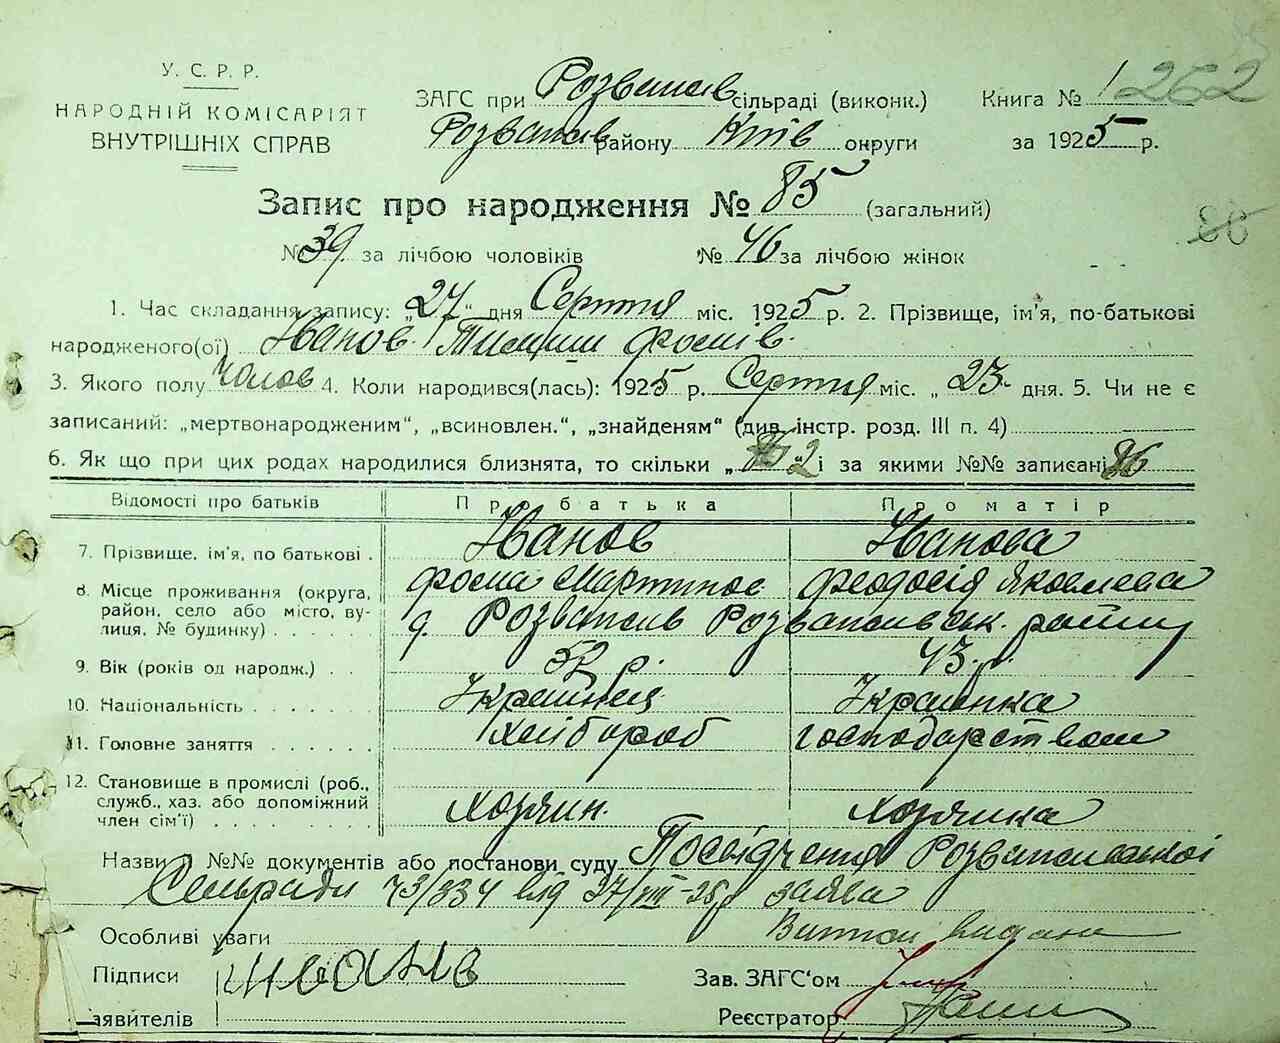 У. С. Р. Р.
НАРОДНІЙ КОМІСАРІЯТ
ВНУТРІШНІХ СПРАВ
ЗАГС при Розважів сільраді (виконк.) Книга № 1 262
Розважів району Київ округи за 1925 р.
Запис про народження № 85 (загальний)
№ 39 за лічбою чоловіків № 46 за лічбою жінок
1. Час складання запису: „27" дня Серпня міс. 1925 р. 2. Прізвище, ім'я, по-батькові
народженого(ої) Іванов Фомів
3. Якого полу чолов 4. Коли народився(лась): 1925 р. Серпня міс. „23" дня. 5. Чи не є
записаний: „мертвонародженим", „всиновлен.", „знайденям" (див. інстр. розд. III п. 4)
6. Як що при цих родах народилися близнята, то скільки „2" і за якими №№ записані 86
Відомості про батьків Про батька Про матір
7. Прізвище, ім'я, по батькові . Іванов Іванова
Фома Мартинов Феодосія Яковлева
8. Місце проживання (округа, район, село або місто, вулиця, № будинку) . . . . . с. Розважів Розважівськ. району
9. Вік (років од народж.) . . 52 р. 43 р.
10. Національність . . . . . . . Українець Українка
11. Головне заняття . . . . . . хлібороб господарством
12. Становище в промислі (роб., служб., хаз. або допоміжний член сім'ї) . . . . . . . . хозяин. хозяика
Назви і №№ документів або постанови суду Посвідчення Розважівської
Сельради 73/334 від 27/VIII-25 р заява
Особливі уваги Витяг видано
Підписи Иванів Зав. ЗАГС'ом
заявителів Реєстратор